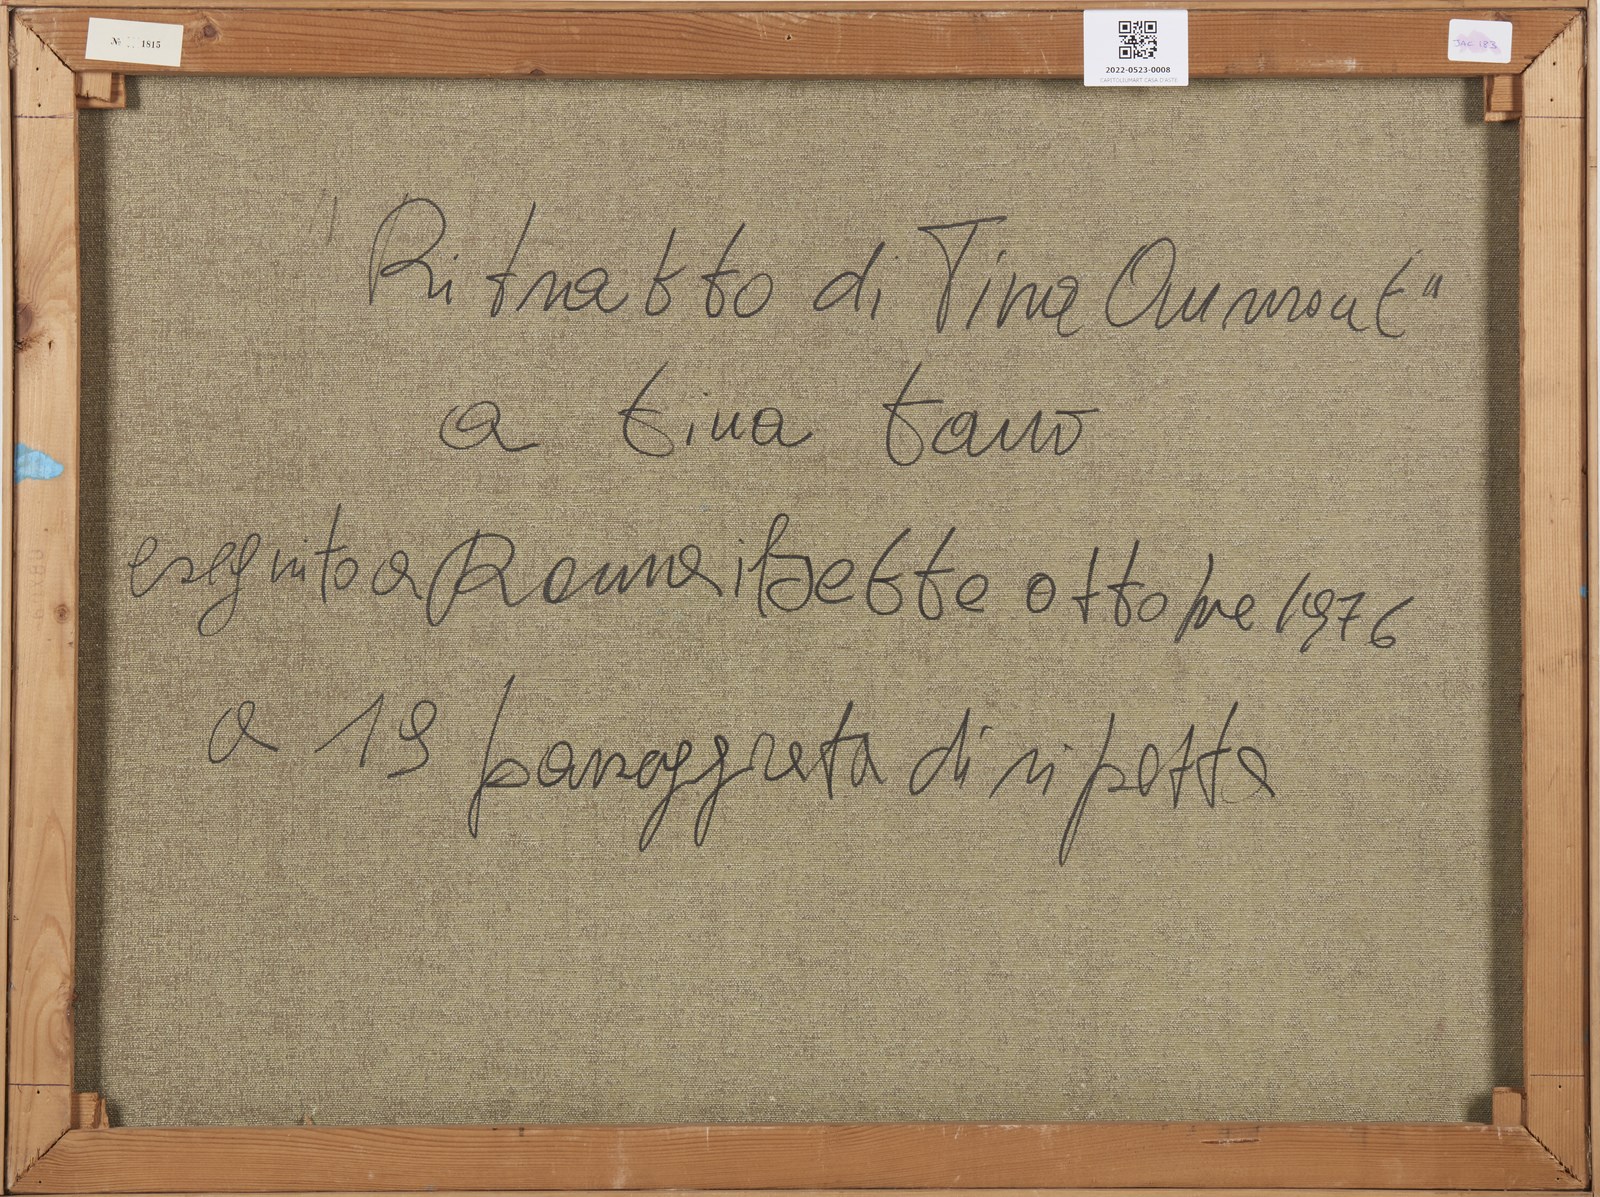 № 1815
2022-0523-0008
CAPITOLIUMART CASA D'ASTE
JAC 183
"Ritratto di Tina Aumont"
a tina tano
eseguito a Roma il sette ottobre 1976
a 19 passeggiata di ripetta